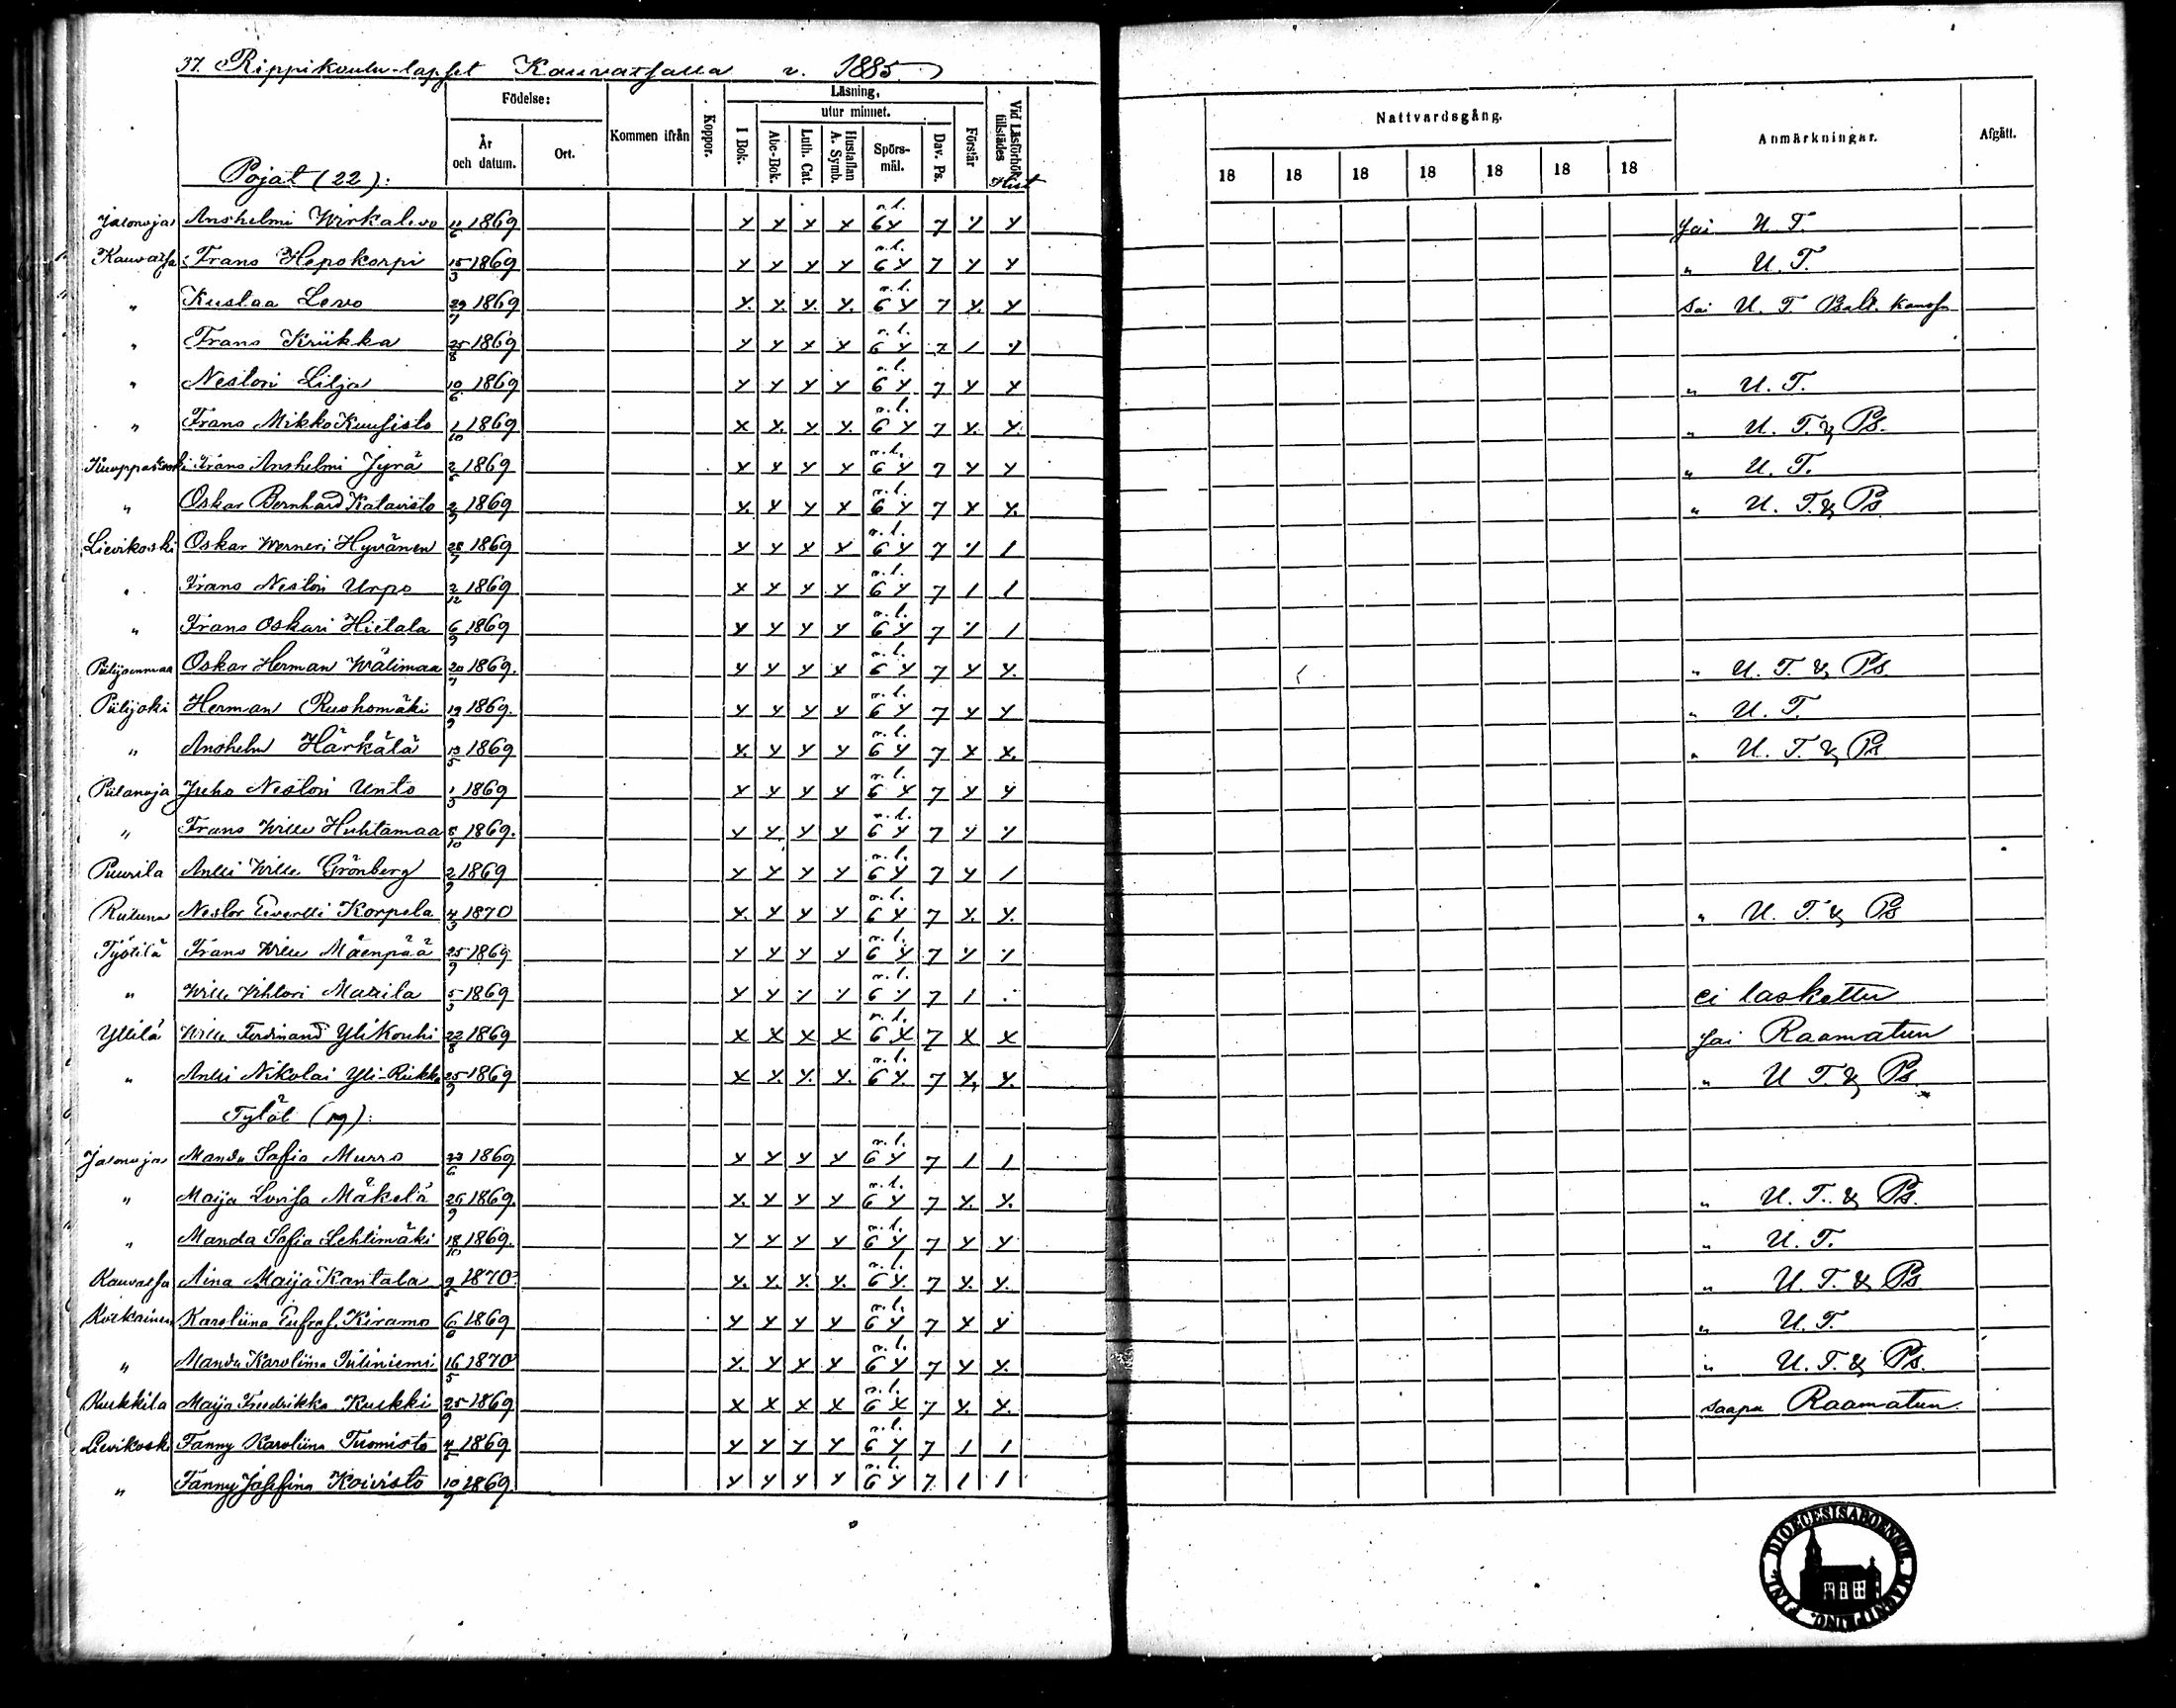 37. Rippikoulu-lapset Kauvatsalla v. 1885
Födelse: Kommen ifrån Koppor. Läsning, Vid Läsförhör tillstädes
utur minnet.
År och datum. Ort. I Bok. Abc-Bok. Luth. Cat. Hustaflan A. Symb. Spörs-mål. Dav. Ps. Förstår
Nattvardsgång. Anmärkningar. Afgått.
18 18 18 18 18 18 18
Pojat (22): Hist
Anshelmi Wirkalevo 1869 n.l. 6 7 Sai U. T.
Kauvatsa Frans Hepokorpi 15/3 1869 n.l. 6 7 " U. T.
" Kustaa Levo 29/7 1869 n.l. 6 7 Sai U. T.
" Frans Kriikka 25/8 1869 n.l. 6 7
" Nestori Lilja 10/6 1869 n.l. 6 7 " U. T.
" Frans Mikko Kuusisto 1/10 1869 n.l. 6 7 " U. T. & Ps.
Frans Anshelmi Jyrä 1869 n.l. 6 7 " U. T.
" Oskar Bernhard Katavisto 1869 n.l. 6 7 " U. T. & Ps
Lievikoski Oskar Werneri Hyvänen 28/7 1869 n.l. 6 7
" Frans Nestori Urpo 2/12 1869 n.l. 6 7
" Frans Oskari Hietala 6/9 1869 n.l. 6 7
Oskar Herman Wälimaa 20/7 1869. n.l. 6 7 " U. T. & Ps.
Piilijoki Herman Ruohomäki 19/9 1869. n.l. 6 7 " U. T.
" Anshelm Härkälä 13/5 1869 n.l. 6 7 " U. T. & Ps
Piilanoja Juho Nestori Unto 1/3 1869 n.l. 6 7
" Frans Wille Huhtamaa 5/10 1869. n.l. 6 7
Puurila Antti Wille Grönberg 2/9 1869 n.l. 6 7
Nestor Eevertti Korpela 4/3 1870 n.l. 6 7 " U. T. & Ps
Työtilä Frans Wille Mäenpää 25/9 1869 n.l. 6 7
" Wille Vihtori Mattila 5/3 1869 n.l. 6 7 ei laskettu
Yttilä Wille Ferdinand Ylikouhi 22/8 1869 n.l. 6 7 Sai Raamatun
" Antti Nikolai Yli-Riikka 25/9 1869 n.l. 6 7 " U T. & Ps.
Tytöt (19):
Manda Sofia Murro 1869 n.l. 6 7
" Maija Lovisa Mäkelä 26/9 1869 n.l. 6 7 " U. T. & Ps.
" Manda Sofia Lehtimäki 18/10 1869. n.l. 6 7 " U. T.
Kauvatsa Aina Maija Kantala 1870 n.l. 6 7 " U. T. & Ps
Karoliina Eufros. Kiramo 1869 n.l. 6 7 " U. T.
" Manda Karoliina Piiliniemi 16/5 1870 n.l. 6 7 " U. T. & Ps.
Kurkkila Maija Fredrikka Kurkki 25/9 1869 n.l. 6 7 saapu Raamatun.
Lievikoski Fanny Karoliina Tuomisto 1869 n.l. 6 7
" Fanny Josefina Koivisto 10/9 1869 n.l. 6 7